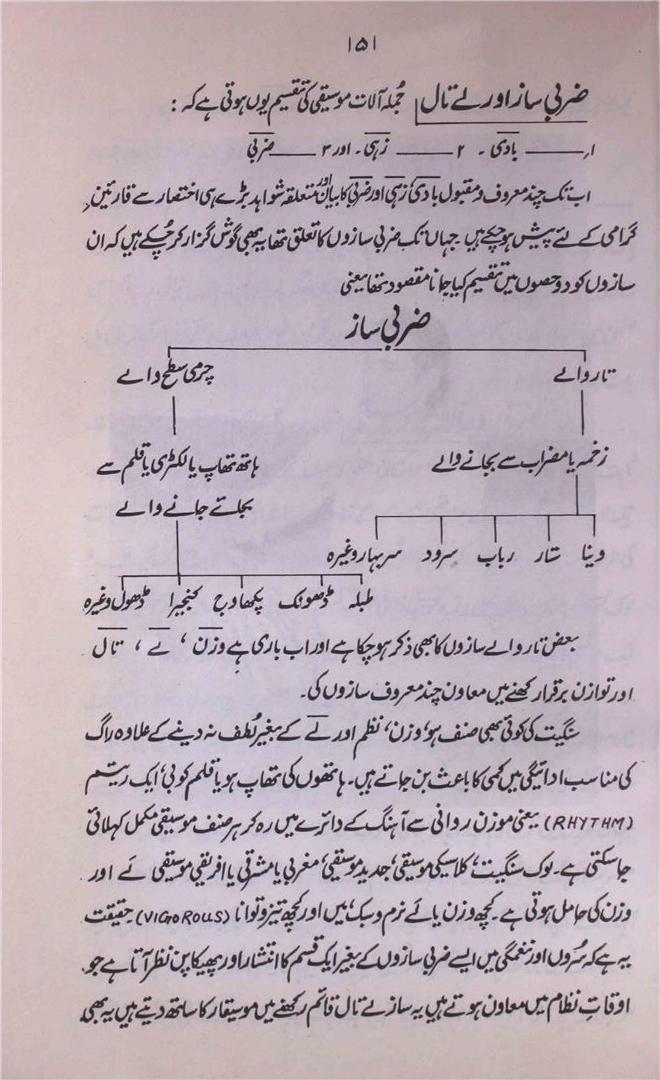 ۱۵۱
ضربی ساز اور لے تال جُملہ آلات موسیقی کی تقسیم یوں ہوتی ہے کہ :
۱۔ ——— بادی ۔ ۲ ——— زہی ۔ اور ۳ ——— ضربی
اب تک چند معروف و مقبول بادی زہی اور ضربی کا بیان اور متعلقہ شواہد بڑے ہی اختصار سے قارئین
گرامی کے لئے پیش ہو چکے ہیں جہاں تک ضربی سازوں کا تعلق تھا یہ بھی گوش گزار کر چُکے ہیں کہ ان
سازوں کو دو حصوں میں تقسیم کیا جانا مقصود تھا یعنی
ضربی ساز
تار والے چرمی سطح والے
زخمہ یا مضراب سے بجانے والے ہاتھ تھاپ یا لکڑی یا قلم سے
بجائے جانے والے
وینا ستار رباب سرود سر بہار وغیرہ
طبلہ ڈھونک پکھاوج کنجیرا ڈھول وغیرہ
بعض تار والے سازوں کا بھی ذکر ہو چکا ہے اور اب باری ہے وزن ، لے ، تال
اور توازن برقرار رکھنے میں معاون چند معروف سازوں کی۔
سنگیت کی کوئی بھی صنف ہو، وزن، نظم اور لے کے بغیر لُطف نہ دینے کے علاوہ راگ
کی مناسب ادائیگی میں کمی کا باعث بن جاتے ہیں۔ ہاتھوں کی تھاپ ہو یا قلم کوبی، ایک ریتم
(RHYTHM) یعنی موزن روانی سے آہنگ کے دائرے میں رہ کر ہر صنف موسیقی مکمل کہلائی
جا سکتی ہے۔ لوک سنگیت، کلاسیکی موسیقی، جدید موسیقی، مغربی یا مشرقی یا افریقی موسیقی لے اور
وزن کی حامل ہوتی ہے۔ کچھ وزن یا لے نرم و سبک ہیں اور کچھ تیز و توانا (VIGOROUS) حقیقت
یہ ہے کہ سُروں اور نغمگی میں ایسے ضربی سازوں کے بغیر ایک قسم کا انتشار اور پھیکا پن نظر آتا ہے جو
اوقات نظام میں معاون ہوتے ہیں یہ ساز لے تال قائم رکھنے میں موسیقار کا ساتھ دیتے ہیں یہ بھی